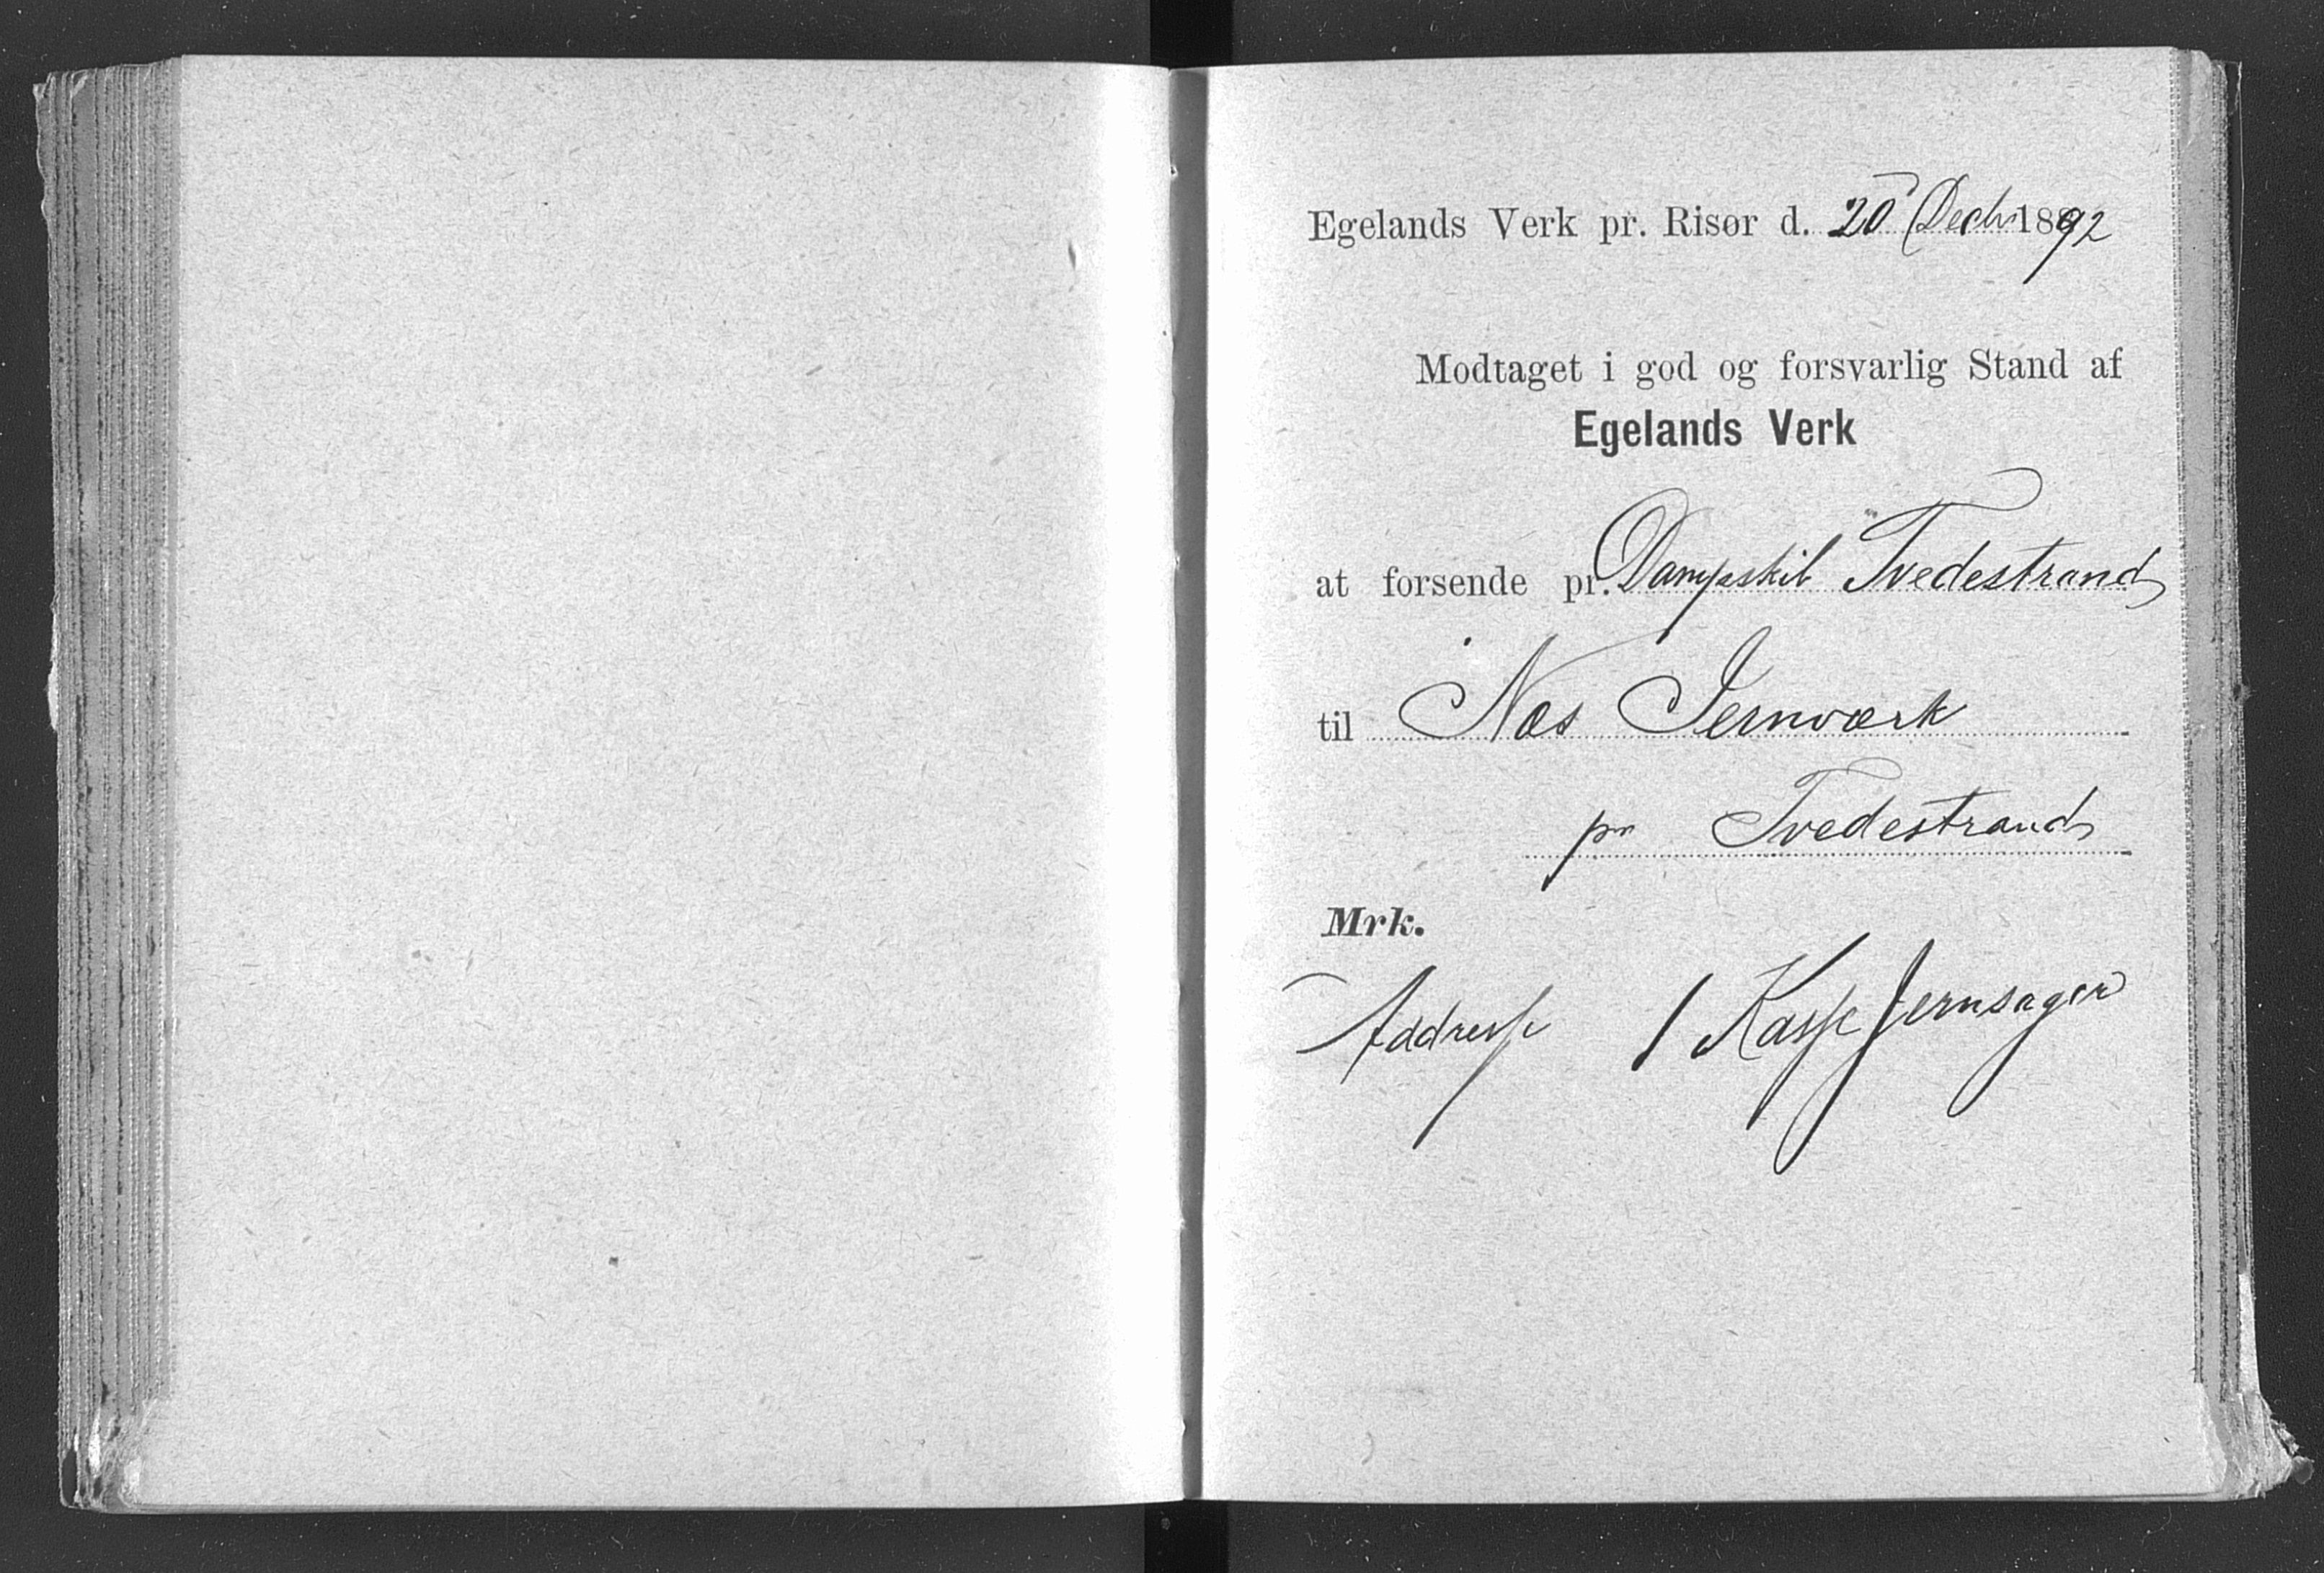 Egelands Verk pr. Risør d. 20 Decbr 1892
Modtaget i god og forsvarlig Stand af
Egelands Verk
at forsende pr. Dampskib Tvedestrand
til Næs Jernværk
pr Tvedestrand
Mrk.
Addresse 1 Kasse Jernsager